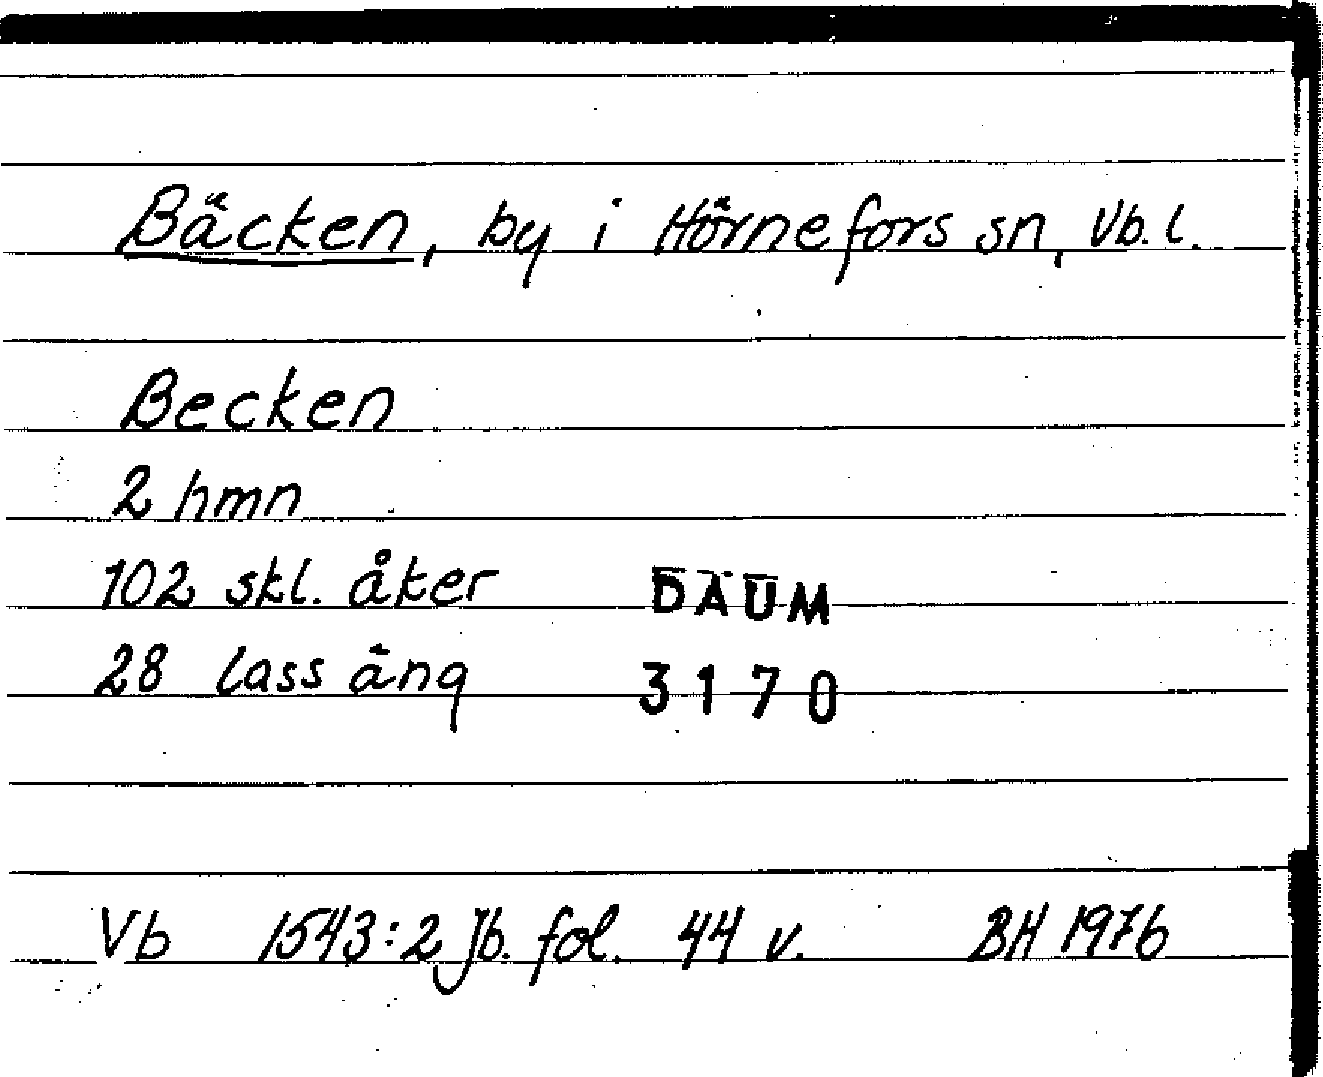 Bäcken, by i Hörnefors sn, Vb. l.
Becken
2 hmn
102 skl. åker
DAUM
28 lass äng
3170
Vb 1543:2 Jb. fol. 44 v. BH 1976